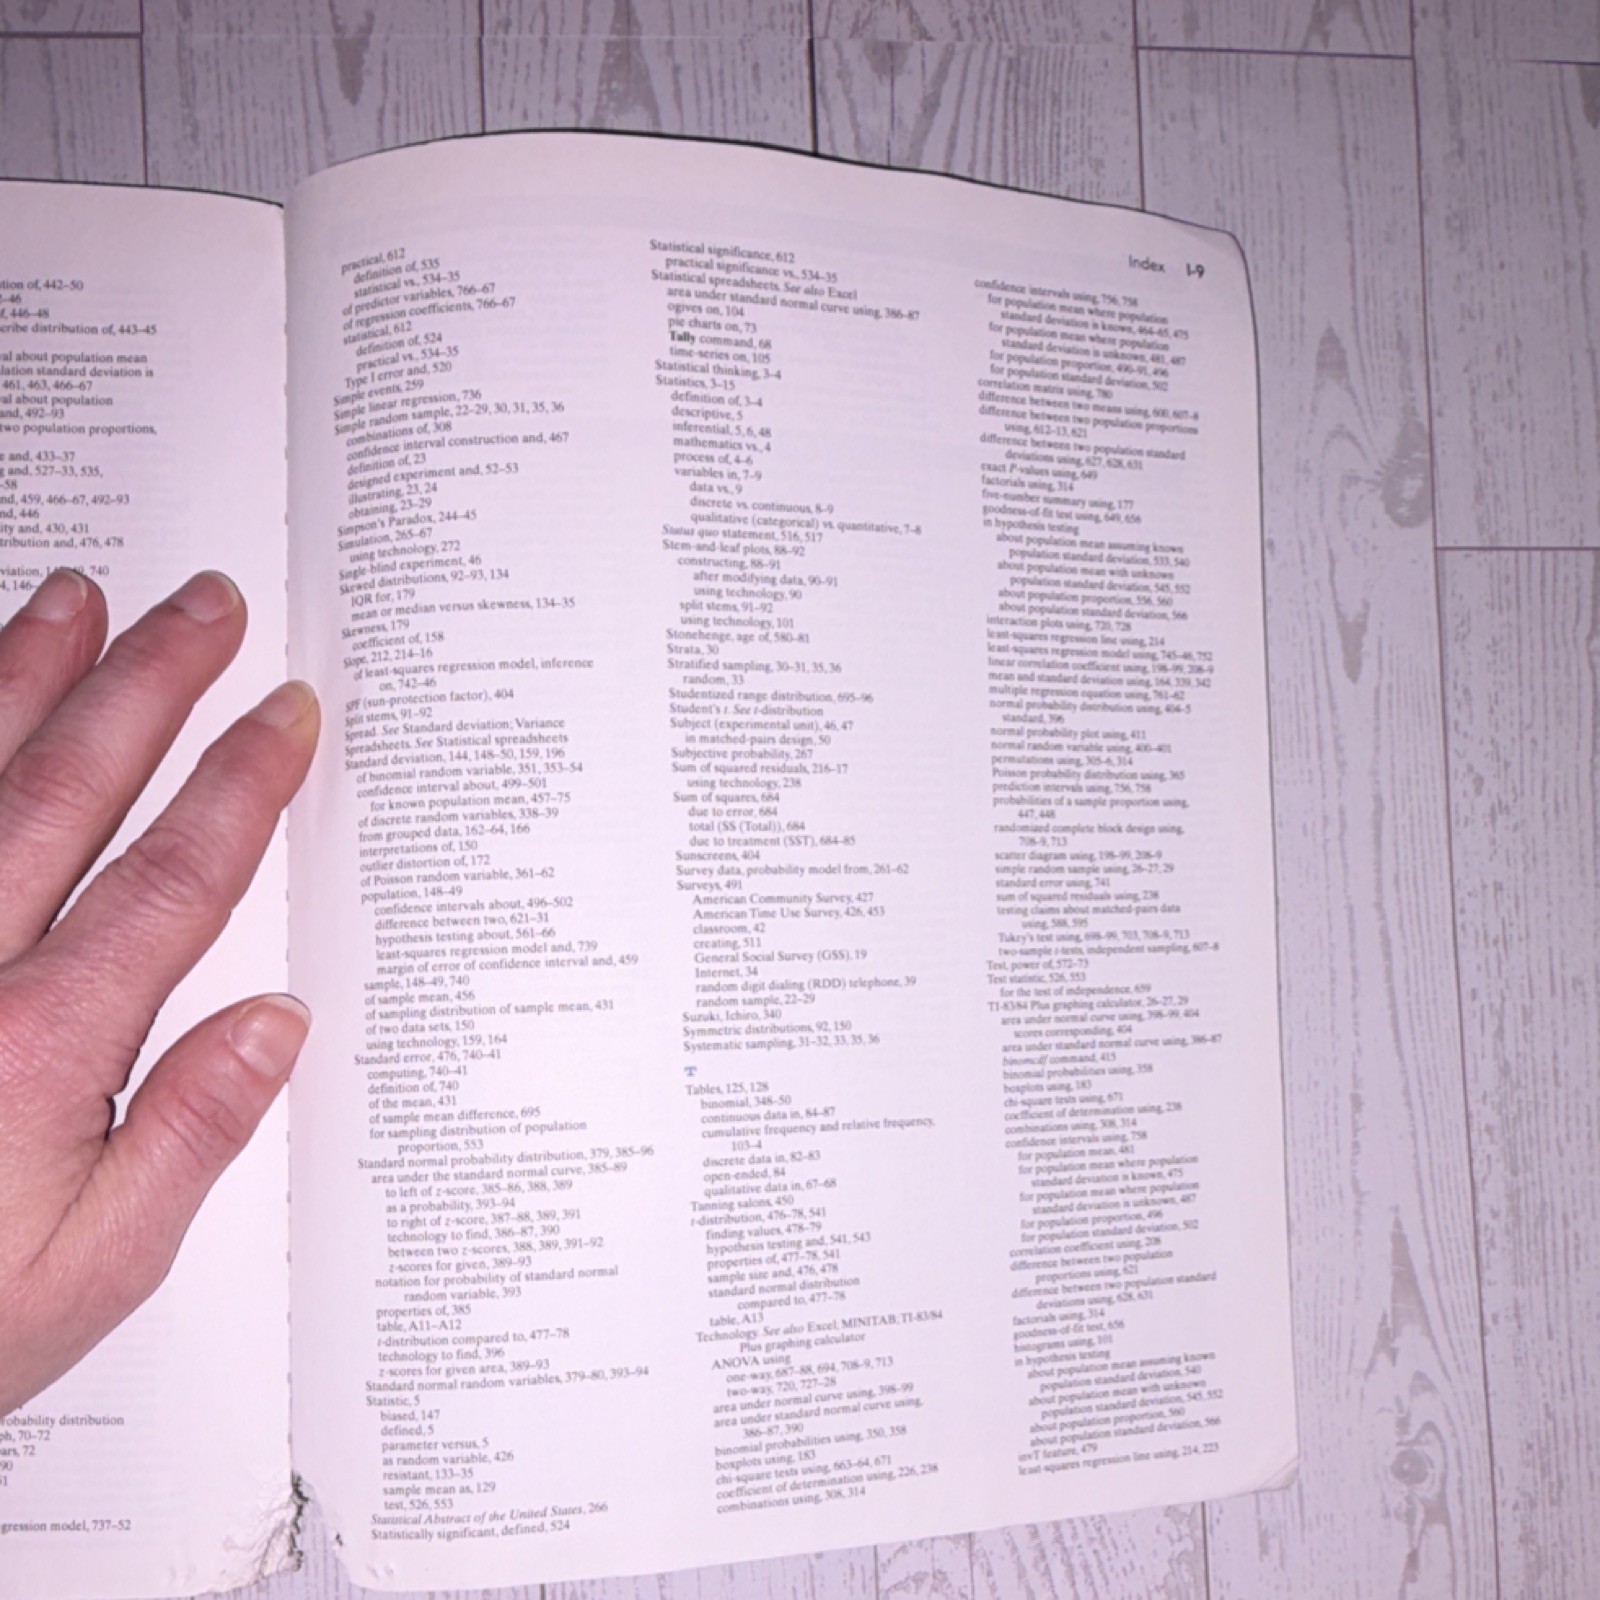 tion of, 442-50
2-46
f, 446-48
cribe distribution of, 443-45
al about population mean
lation standard deviation is
461, 463, 466-67
al about population
and, 492-93
two population proportions,
e and, 433-37
g and, 527-33, 535,
-58
nd, 459, 466-67, 492-93
nd, 446
ity and, 430, 431
tribution and, 476, 478
viation, 740
4, 146-
robability distribution
ph, 70-72
ars, 72
90
51
gression model, 737-52
Index I-9
practical, 612
definition of, 535
statistical vs., 534-35
of predictor variables, 766-67
of regression coefficients, 766-67
statistical, 612
definition of, 524
practical vs., 534-35
Type I error and, 520
Simple events, 259
Simple linear regression, 736
Simple random sample, 22-29, 30, 31, 35, 36
combinations of, 308
confidence interval construction and, 467
definition of, 23
designed experiment and, 52-53
illustrating, 23, 24
obtaining, 23-29
Simpson's Paradox, 244-45
Simulation, 265-67
using technology, 272
Single-blind experiment, 46
Skewed distributions, 92-93, 134
IQR for, 179
mean or median versus skewness, 134-35
Skewness, 179
coefficient of, 158
Slope, 212, 214-16
of least-squares regression model, inference
on, 742-46
SPF (sun-protection factor), 404
Split stems, 91-92
Spread. See Standard deviation; Variance
Spreadsheets. See Statistical spreadsheets
Standard deviation, 144, 148-50, 159, 196
of binomial random variable, 351, 353-54
confidence interval about, 499-501
for known population mean, 457-75
of discrete random variables, 338-39
from grouped data, 162-64, 166
interpretations of, 150
outlier distortion of, 172
of Poisson random variable, 361-62
population, 148-49
confidence intervals about, 496-502
difference between two, 621-31
hypothesis testing about, 561-66
least-squares regression model and, 739
margin of error of confidence interval and, 459
sample, 148-49, 740
of sample mean, 456
of sampling distribution of sample mean, 431
of two data sets, 150
using technology, 159, 164
Standard error, 476, 740-41
computing, 740-41
definition of, 740
of the mean, 431
of sample mean difference, 695
for sampling distribution of population
proportion, 553
Standard normal probability distribution, 379, 385-96
area under the standard normal curve, 385-89
to left of z-score, 385-86, 388, 389
as a probability, 393-94
to right of z-score, 387-88, 389, 391
technology to find, 386-87, 390
between two z-scores, 388, 389, 391-92
z-scores for given, 389-93
notation for probability of standard normal
random variable, 393
properties of, 385
table, A11-A12
t-distribution compared to, 477-78
technology to find, 396
z-scores for given area, 389-93
Standard normal random variables, 379-80, 393-94
Statistic, 5
biased, 147
defined, 5
parameter versus, 5
as random variable, 426
resistant, 133-35
sample mean as, 129
test, 526, 553
Statistical Abstract of the United States, 266
Statistically significant, defined, 524
Statistical significance, 612
practical significance vs., 534-35
Statistical spreadsheets. See also Excel
area under standard normal curve using, 386-87
ogives on, 104
pie charts on, 73
Tally command, 68
time-series on, 105
Statistical thinking, 3-4
Statistics, 3-15
definition of, 3-4
descriptive, 5
inferential, 5, 6, 48
mathematics vs., 4
process of, 4-6
variables in, 7-9
data vs., 9
discrete vs. continuous, 8-9
qualitative (categorical) vs. quantitative, 7-8
Status quo statement, 516, 517
Stem-and-leaf plots, 88-92
constructing, 88-91
after modifying data, 90-91
using technology, 90
split stems, 91-92
using technology, 101
Stonehenge, age of, 580-81
Strata, 30
Stratified sampling, 30-31, 35, 36
random, 33
Studentized range distribution, 695-96
Student's t. See t-distribution
Subject (experimental unit), 46, 47
in matched-pairs design, 50
Subjective probability, 267
Sum of squared residuals, 216-17
using technology, 238
Sum of squares, 684
due to error, 684
total (SS (Total)), 684
due to treatment (SST), 684-85
Sunscreens, 404
Survey data, probability model from, 261-62
Surveys, 491
American Community Survey, 427
American Time Use Survey, 426, 453
classroom, 42
creating, 511
General Social Survey (GSS), 19
Internet, 34
random digit dialing (RDD) telephone, 39
random sample, 22-29
Suzuki, Ichiro, 340
Symmetric distributions, 92, 150
Systematic sampling, 31-32, 33, 35, 36
T
Tables, 125, 128
binomial, 348-50
continuous data in, 84-87
cumulative frequency and relative frequency,
103-4
discrete data in, 82-83
open-ended, 84
qualitative data in, 67-68
Tanning salons, 450
t-distribution, 476-78, 541
finding values, 478-79
hypothesis testing and, 541, 543
properties of, 477-78, 541
sample size and, 476, 478
standard normal distribution
compared to, 477-78
table, A13
Technology. See also Excel; MINITAB; TI-83/84
Plus graphing calculator
ANOVA using
one-way, 687-88, 694, 708-9, 713
two-way, 720, 727-28
area under normal curve using, 398-99
area under standard normal curve using,
386-87, 390
binomial probabilities using, 350, 358
boxplots using, 183
chi-square tests using, 663-64, 671
coefficient of determination using, 236, 238
combinations using, 308, 314
confidence intervals using, 756, 758
for population mean where population
standard deviation is known, 464-65, 475
for population mean where population
standard deviation is unknown, 481, 487
for population proportion, 490-91, 496
for population standard deviation, 502
correlation matrix using, 780
difference between two means using, 600, 607-8
difference between two population proportions
using, 612-13, 621
difference between two population standard
deviations using, 627, 628, 631
exact P-values using, 649
factorials using, 314
five-number summary using, 177
goodness-of-fit test using, 649, 656
in hypothesis testing
about population mean assuming known
population standard deviation, 533, 540
about population mean with unknown
population standard deviation, 545, 552
about population proportion, 556, 560
about population standard deviation, 566
interaction plots using, 720, 728
least-squares regression line using, 214
least-squares regression model using, 745-46, 752
linear correlation coefficient using, 198-99, 208-9
mean and standard deviation using, 164, 339, 342
multiple regression equation using, 761-62
normal probability distribution using, 404-5
standard, 396
normal probability plot using, 411
normal random variable using, 400-401
permutations using, 305-6, 314
Poisson probability distribution using, 365
prediction intervals using, 756, 758
probabilities of a sample proportion using,
447, 448
randomized complete block design using,
708-9, 713
scatter diagram using, 198-99, 208-9
simple random sample using, 26-27, 29
standard error using, 741
sum of squared residuals using, 238
testing claims about matched-pairs data
using, 588, 595
Tukey's test using, 698-99, 703, 708-9, 713
two-sample t-tests, independent sampling, 607-8
Test, power of, 572-73
Test statistic, 526, 553
for the test of independence, 659
TI-83/84 Plus graphing calculator, 26-27, 29
area under normal curve using, 398-99, 404
scores corresponding, 404
area under standard normal curve using, 386-87
binomcdf command, 415
binomial probabilities using, 358
boxplots using, 183
chi-square tests using, 671
coefficient of determination using, 238
combinations using, 308, 314
confidence intervals using, 758
for population mean, 481
for population mean where population
standard deviation is known, 475
for population mean where population
standard deviation is unknown, 487
for population proportion, 496
for population standard deviation, 502
correlation coefficient using, 208
difference between two population
proportions using, 621
difference between two population standard
deviations using, 628, 631
factorials using, 314
goodness-of-fit test, 656
histograms using, 101
in hypothesis testing
about population mean assuming known
population standard deviation, 540
about population mean with unknown
population standard deviation, 545, 552
about population proportion, 560
about population standard deviation, 566
invT feature, 479
least-squares regression line using, 214, 223